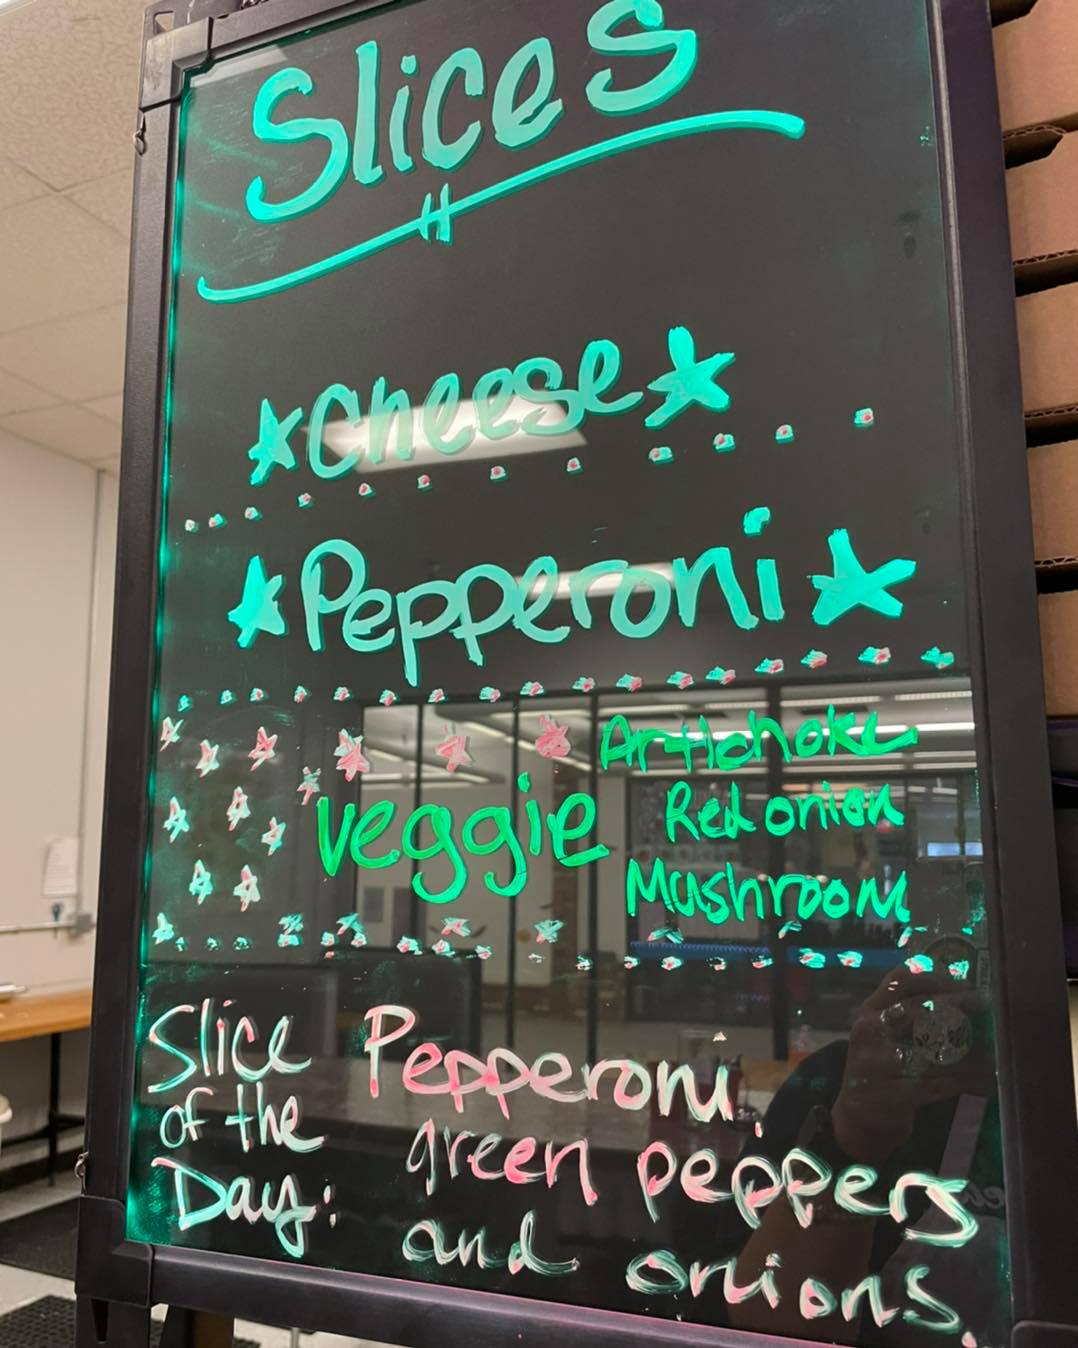 Slices
Cheese
Pepperoni
veggie
Artichoke
Red onion
Mushroom
Slice
of the
Day:
Pepperoni,
green peppers
and onions.